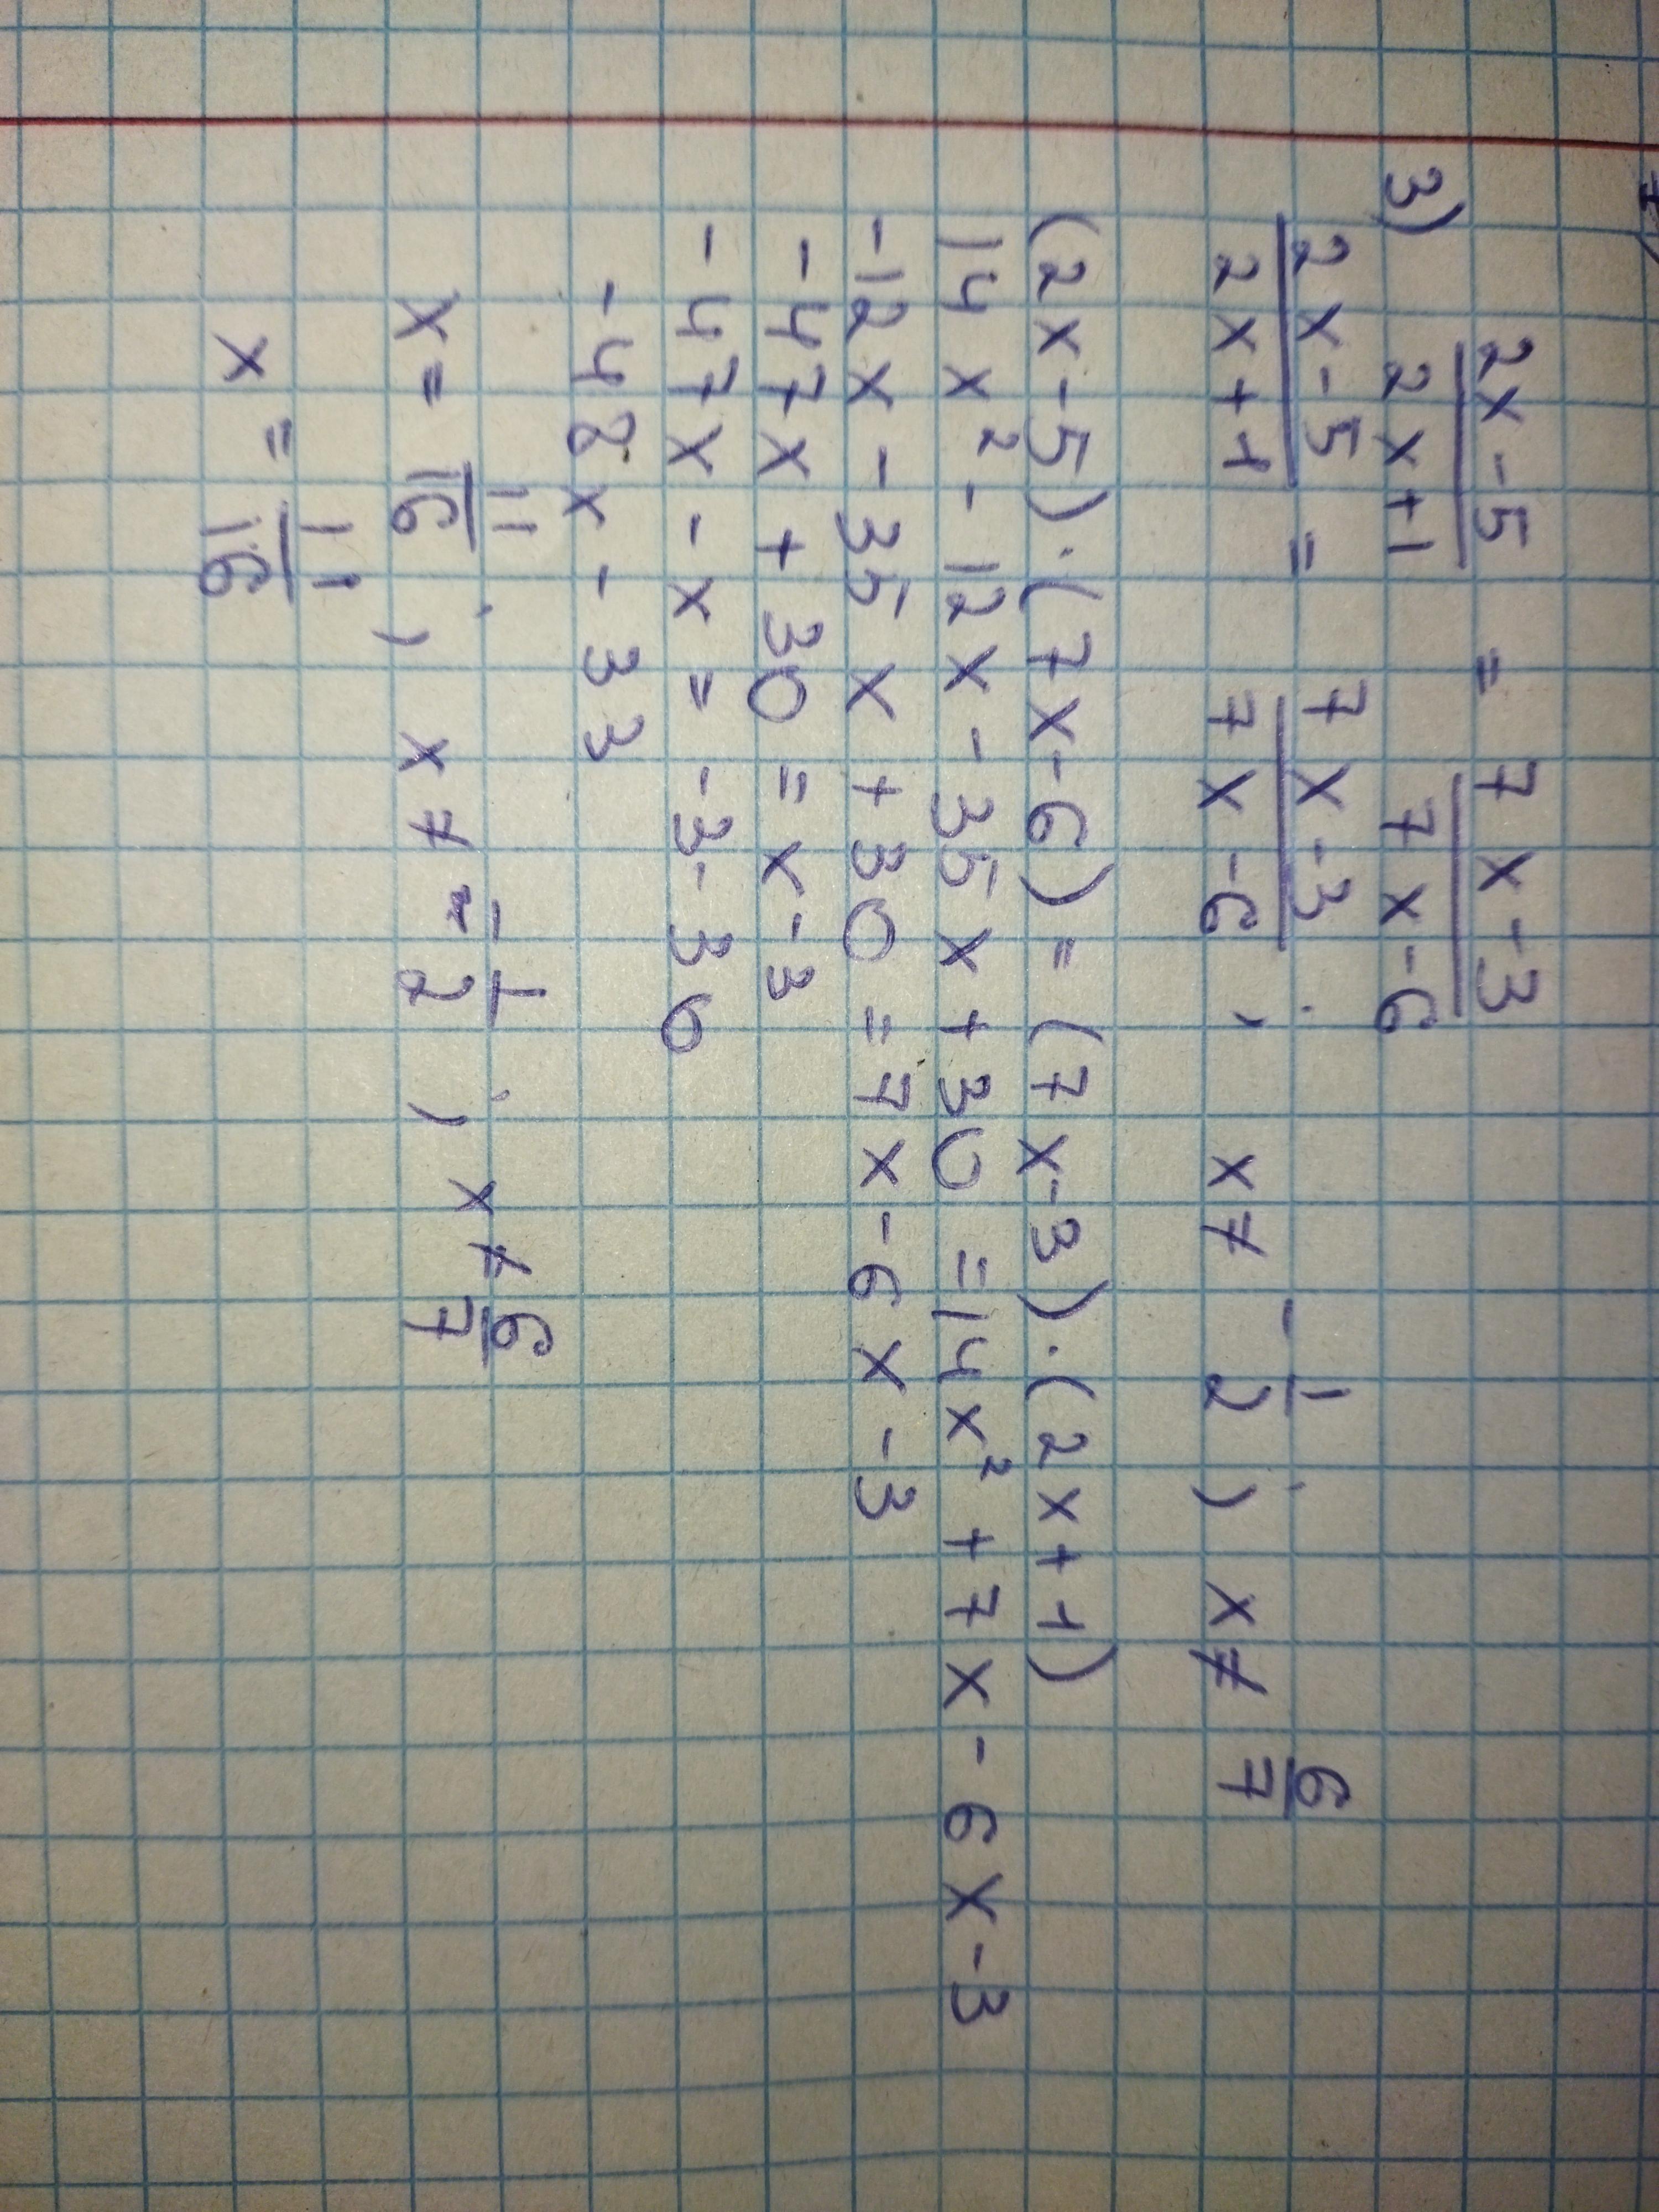 3) (2x-5)/(2x+1) = (7x-3)/(7x-6)
(2x-5)/(2x+1) = (7x-3)/(7x-6) ; x ≠ -1/2 ; x ≠ 6/7
(2x-5)·(7x-6) = (7x-3)·(2x+1)
14x² - 12x - 35x + 30 = 14x² + 7x - 6x - 3
-12x - 35x + 30 = 7x - 6x - 3
-47x + 30 = x - 3
-47x - x = -3-30
-48x - 33
x = 11/16 ; x ≠ -1/2 ; x ≠ 6/7
x = 11/16